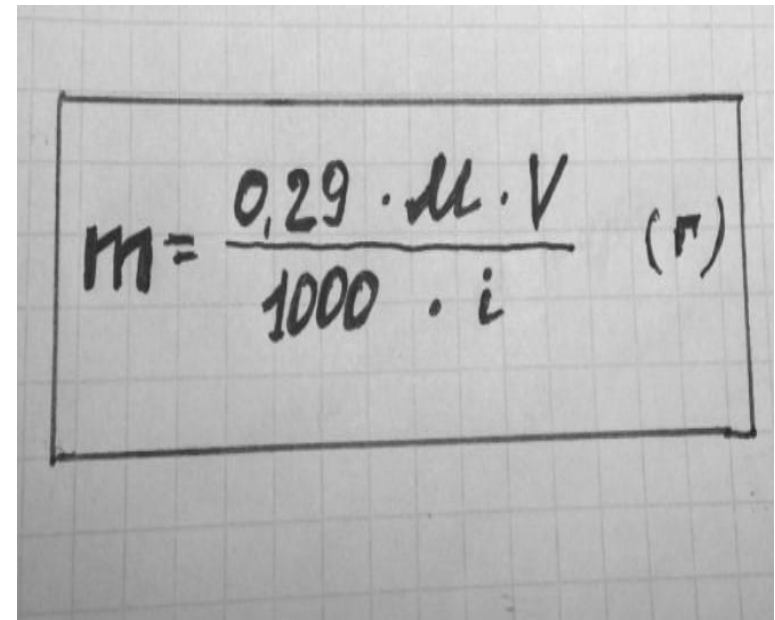 m = 0,29 · M · V / 1000 · i (г)